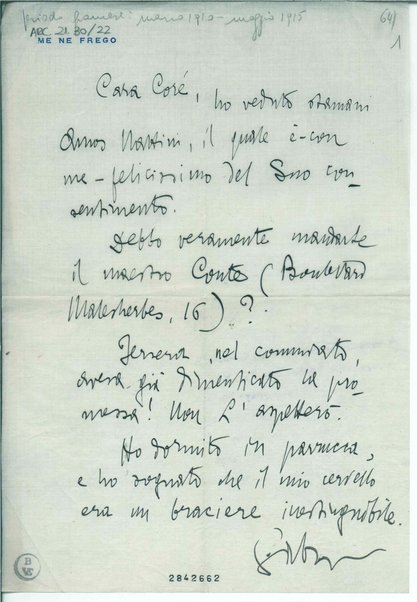 periodo francese: marzo 1910 - maggio 1915
64)
1
ARC. 21.80/22
ME NE FREGO
Cara Coré, ho veduto stamani
Amos Nattini, il quale è - con
me - felicissimo del Suo con-
sentimento.
Debbo veramente mandarle
il maestro Contes (Boulevard
Malesherbes, 16)?
Iersera, nel commiato,
aveva già dimenticato la pro-
messa! Non L'aspetterò.
Ho dormito in parrucca,
e ho sognato che il mio cervello
era un braciere inestinguibile.
B
2842662